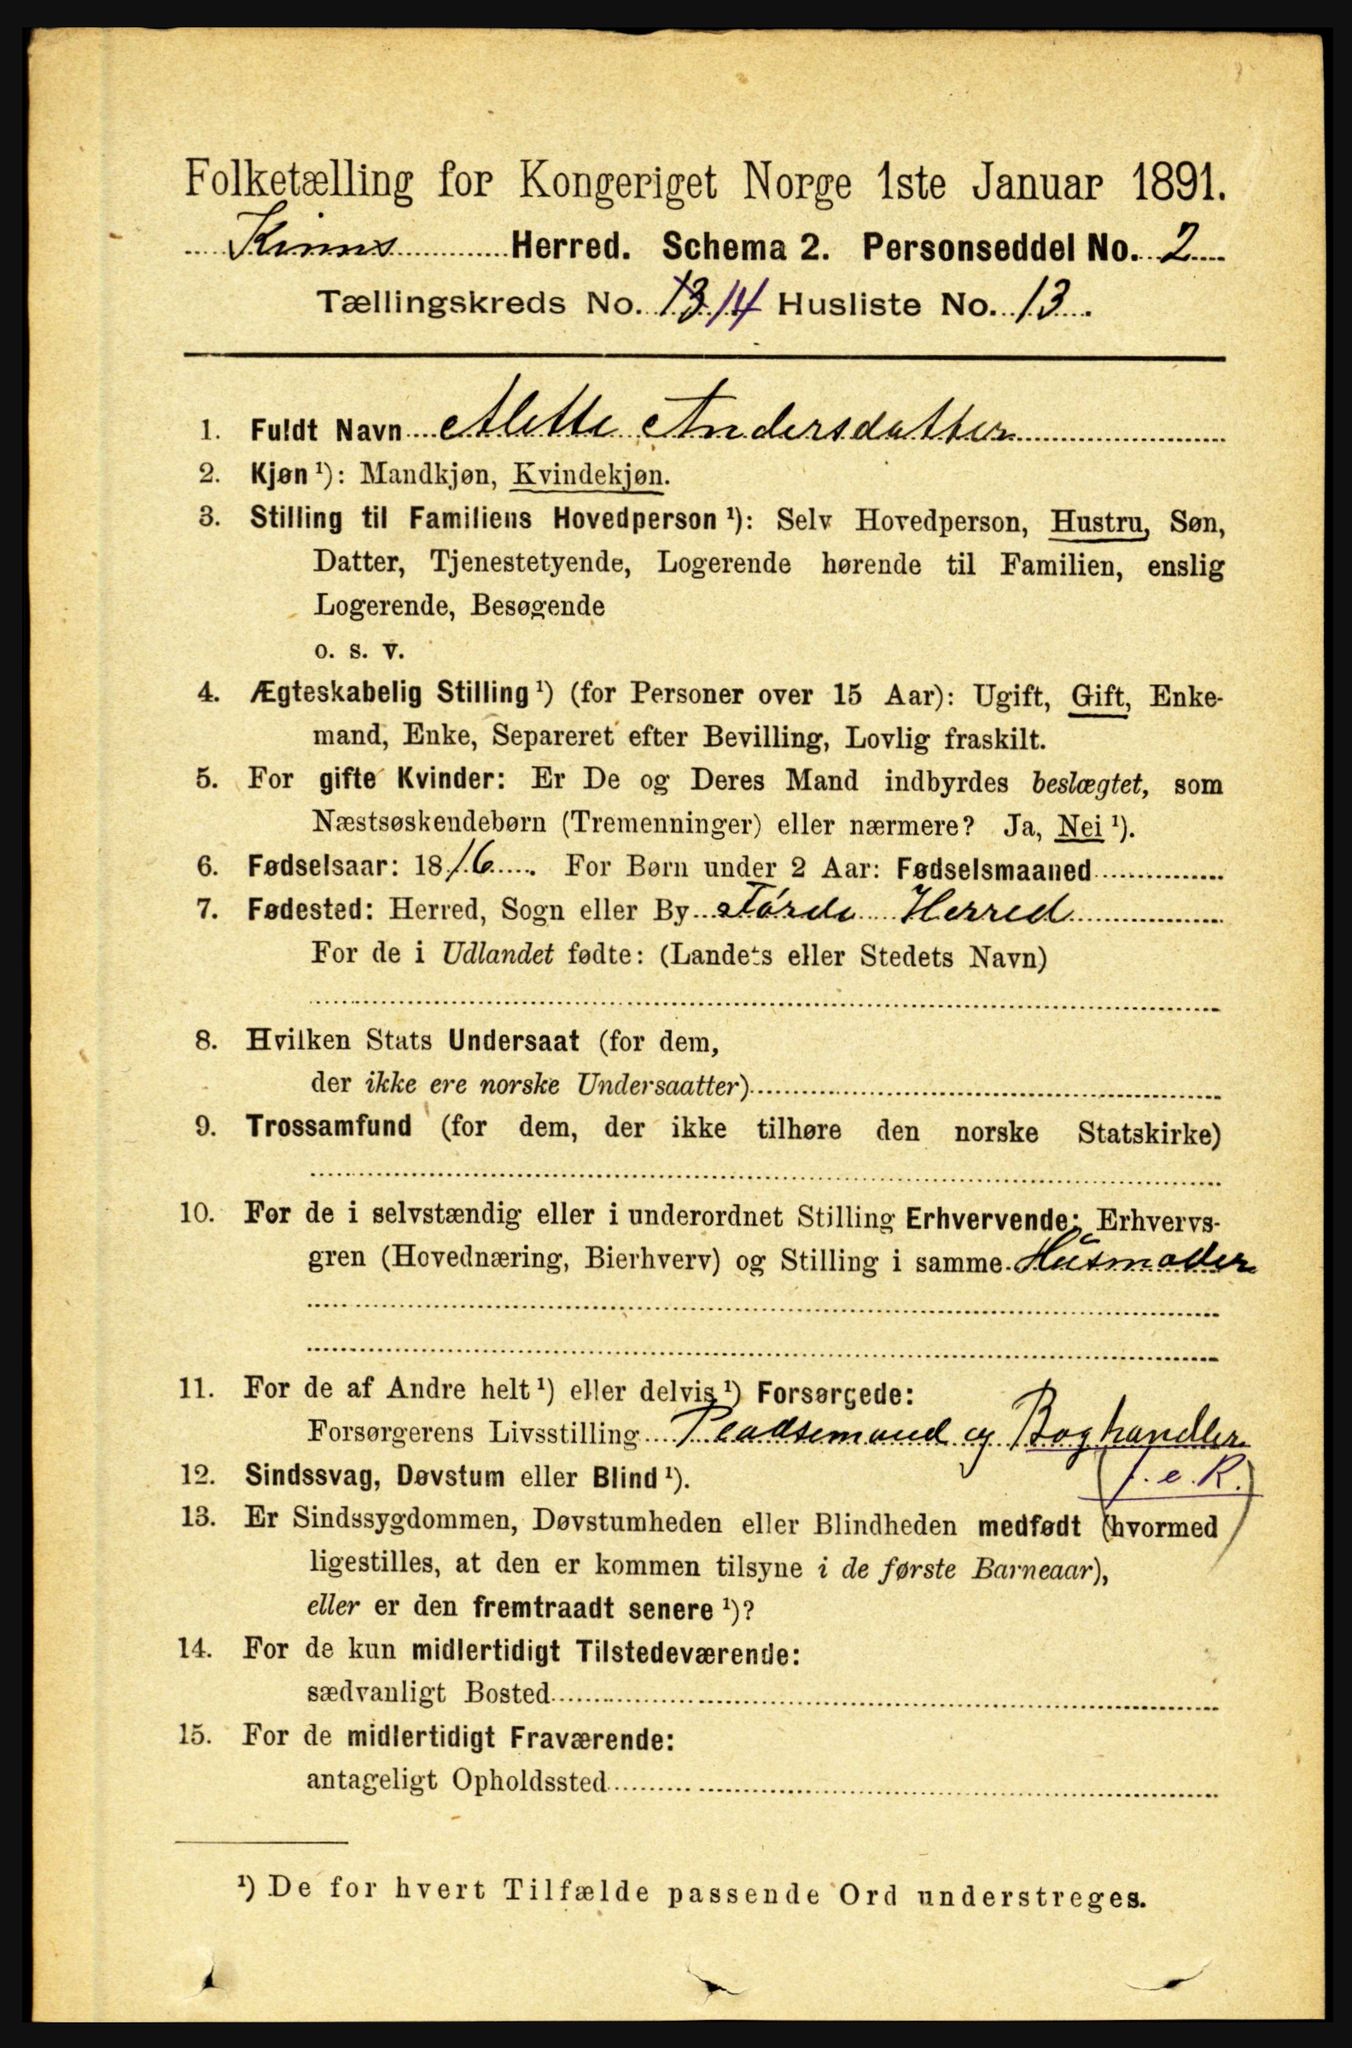 Folketælling for Kongeriget Norge 1ste Januar 1891.
Kinns Herred. Schema 2. Personseddel No. 2
Tællingskreds No. 13 14 Husliste No. 13.
1. Fuldt Navn Alette Andersdatter
2. Kjøn ¹): Mandkjøn, Kvindekjøn.
3. Stilling til Familiens Hovedperson ¹): Selv Hovedperson, Hustru, Søn,
Datter, Tjenestetyende, Logerende hørende til Familien, enslig
Logerende, Besøgende
o. s. v.
4. Ægteskabelig Stilling ¹) (for Personer over 15 Aar): Ugift, Gift, Enke-
mand, Enke, Separeret efter Bevilling, Lovlig fraskilt.
5. For gifte Kvinder: Er De og Deres Mand indbyrdes beslægtet, som
Næstsøskendebørn (Tremenninger) eller nærmere? Ja, Nei ¹).
6. Fødselsaar: 1816. For Børn under 2 Aar: Fødselsmaaned
7. Fødested: Herred, Sogn eller By Førde Herred
For de i Udlandet fødte: (Landets eller Stedets Navn)
8. Hvilken Stats Undersaat (for dem,
der ikke ere norske Undersaatter)
9. Trossamfund (for dem, der ikke tilhøre den norske Statskirke)
10. For de i selvstændig eller i underordnet Stilling Erhvervende: Erhvervs-
gren (Hovednæring, Bierhverv) og Stilling i samme. Husmoder
11. For de af Andre helt ¹) eller delvis ¹) Forsørgede:
Forsørgerens Livsstilling Pladsemand og Boghandler
(f. e. R.)
12. Sindssvag, Døvstum eller Blind ¹).
13. Er Sindssygdommen, Døvstumheden eller Blindheden medfødt (hvormed
ligestilles, at den er kommen tilsyne i de første Barneaar),
eller er den fremtraadt senere ¹)?
14. For de kun midlertidigt Tilstedeværende:
sædvanligt Bosted
15. For de midlertidigt Fraværende:
antageligt Opholdssted
¹) De for hvert Tilfælde passende Ord understreges.